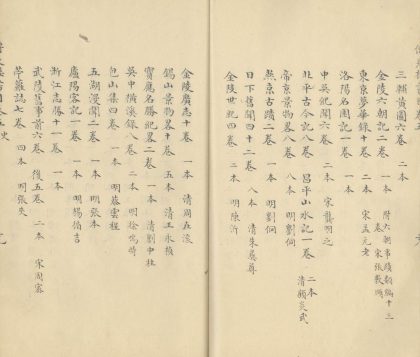 三輔黃圖六卷 二本
金陵六朝記二卷 一本 附六朝事蹟類編十三卷 宋張敦頤
東京夢華錄十卷 二本 宋孟元老
洛陽名園記一卷 一本
中吳紀聞六卷 二本 宋龔明之
北平古今記八卷 昌平山水記一卷 二本 清顧炎武
帝京景物畧八卷 八本 明劉侗
燕京古蹟二卷 一本 明劉侗
日下舊聞四十二卷 八本 清朱彝尊
金陵世紀四卷 二本 明陳沂
金陵廣志十卷 一本 清周在浚
錫山景物畧十卷 五本 清王永積
寶應名勝紀畧二卷 一本 清劉中柱
吳中橫溪錄八卷 二本 明徐鳴時
包山集四卷 一本 明蔡雲程
五湖漫聞二卷 一本 明張本
廬陽客記一卷 一本 明楊循吉
浙江志勝十一卷 一本
武陵舊事前六卷 後五卷 二本 宋周密
苧蘿誌七卷 四本 明張夬